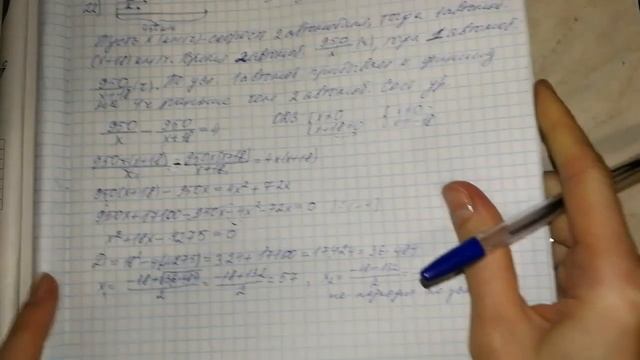 22)
Пусть x (км/ч) - скорость 2 автомобиля, тогда 1 автомоб.
(x+18) км/ч. Время 2 автомоб. 950/x (ч), тогда 1 автомоб.
950/x+18 (ч). 1 автомоб. к финишу
на 4ч раньше чем 2 автомоб.
950/x - 950/x+18 = 4 ОДЗ
950x(x+18)/x - 950x(x+18)/x+18 = 4x(x+18)
950(x+18) - 950x = 4x² + 72x
950x + 17100 - 950x - 4x² - 72x = 0
x² + 18x - 4275 = 0
D = 18² - 4(-4275) = 324 + 17100 = 17424 = 36·484
x₁ = -18+√36·484/2 = -18+132/2 = 57, x₂ = -18-132/2
не